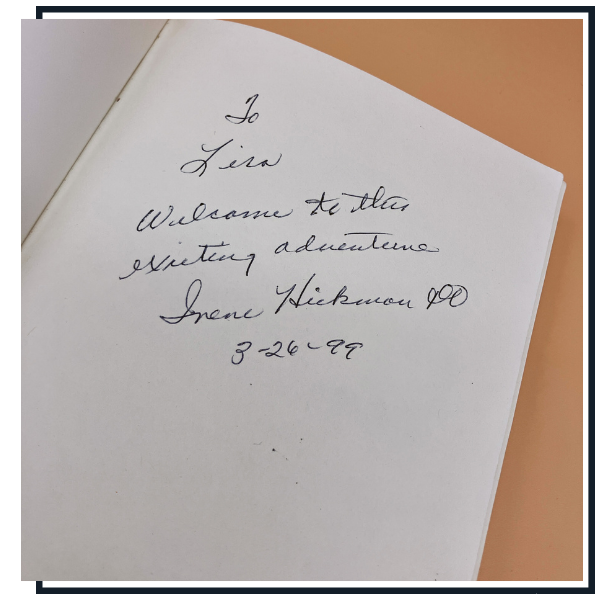 To
Lisa
Welcome to this
exciting adventure
Irene Hickman DO
3-26-99